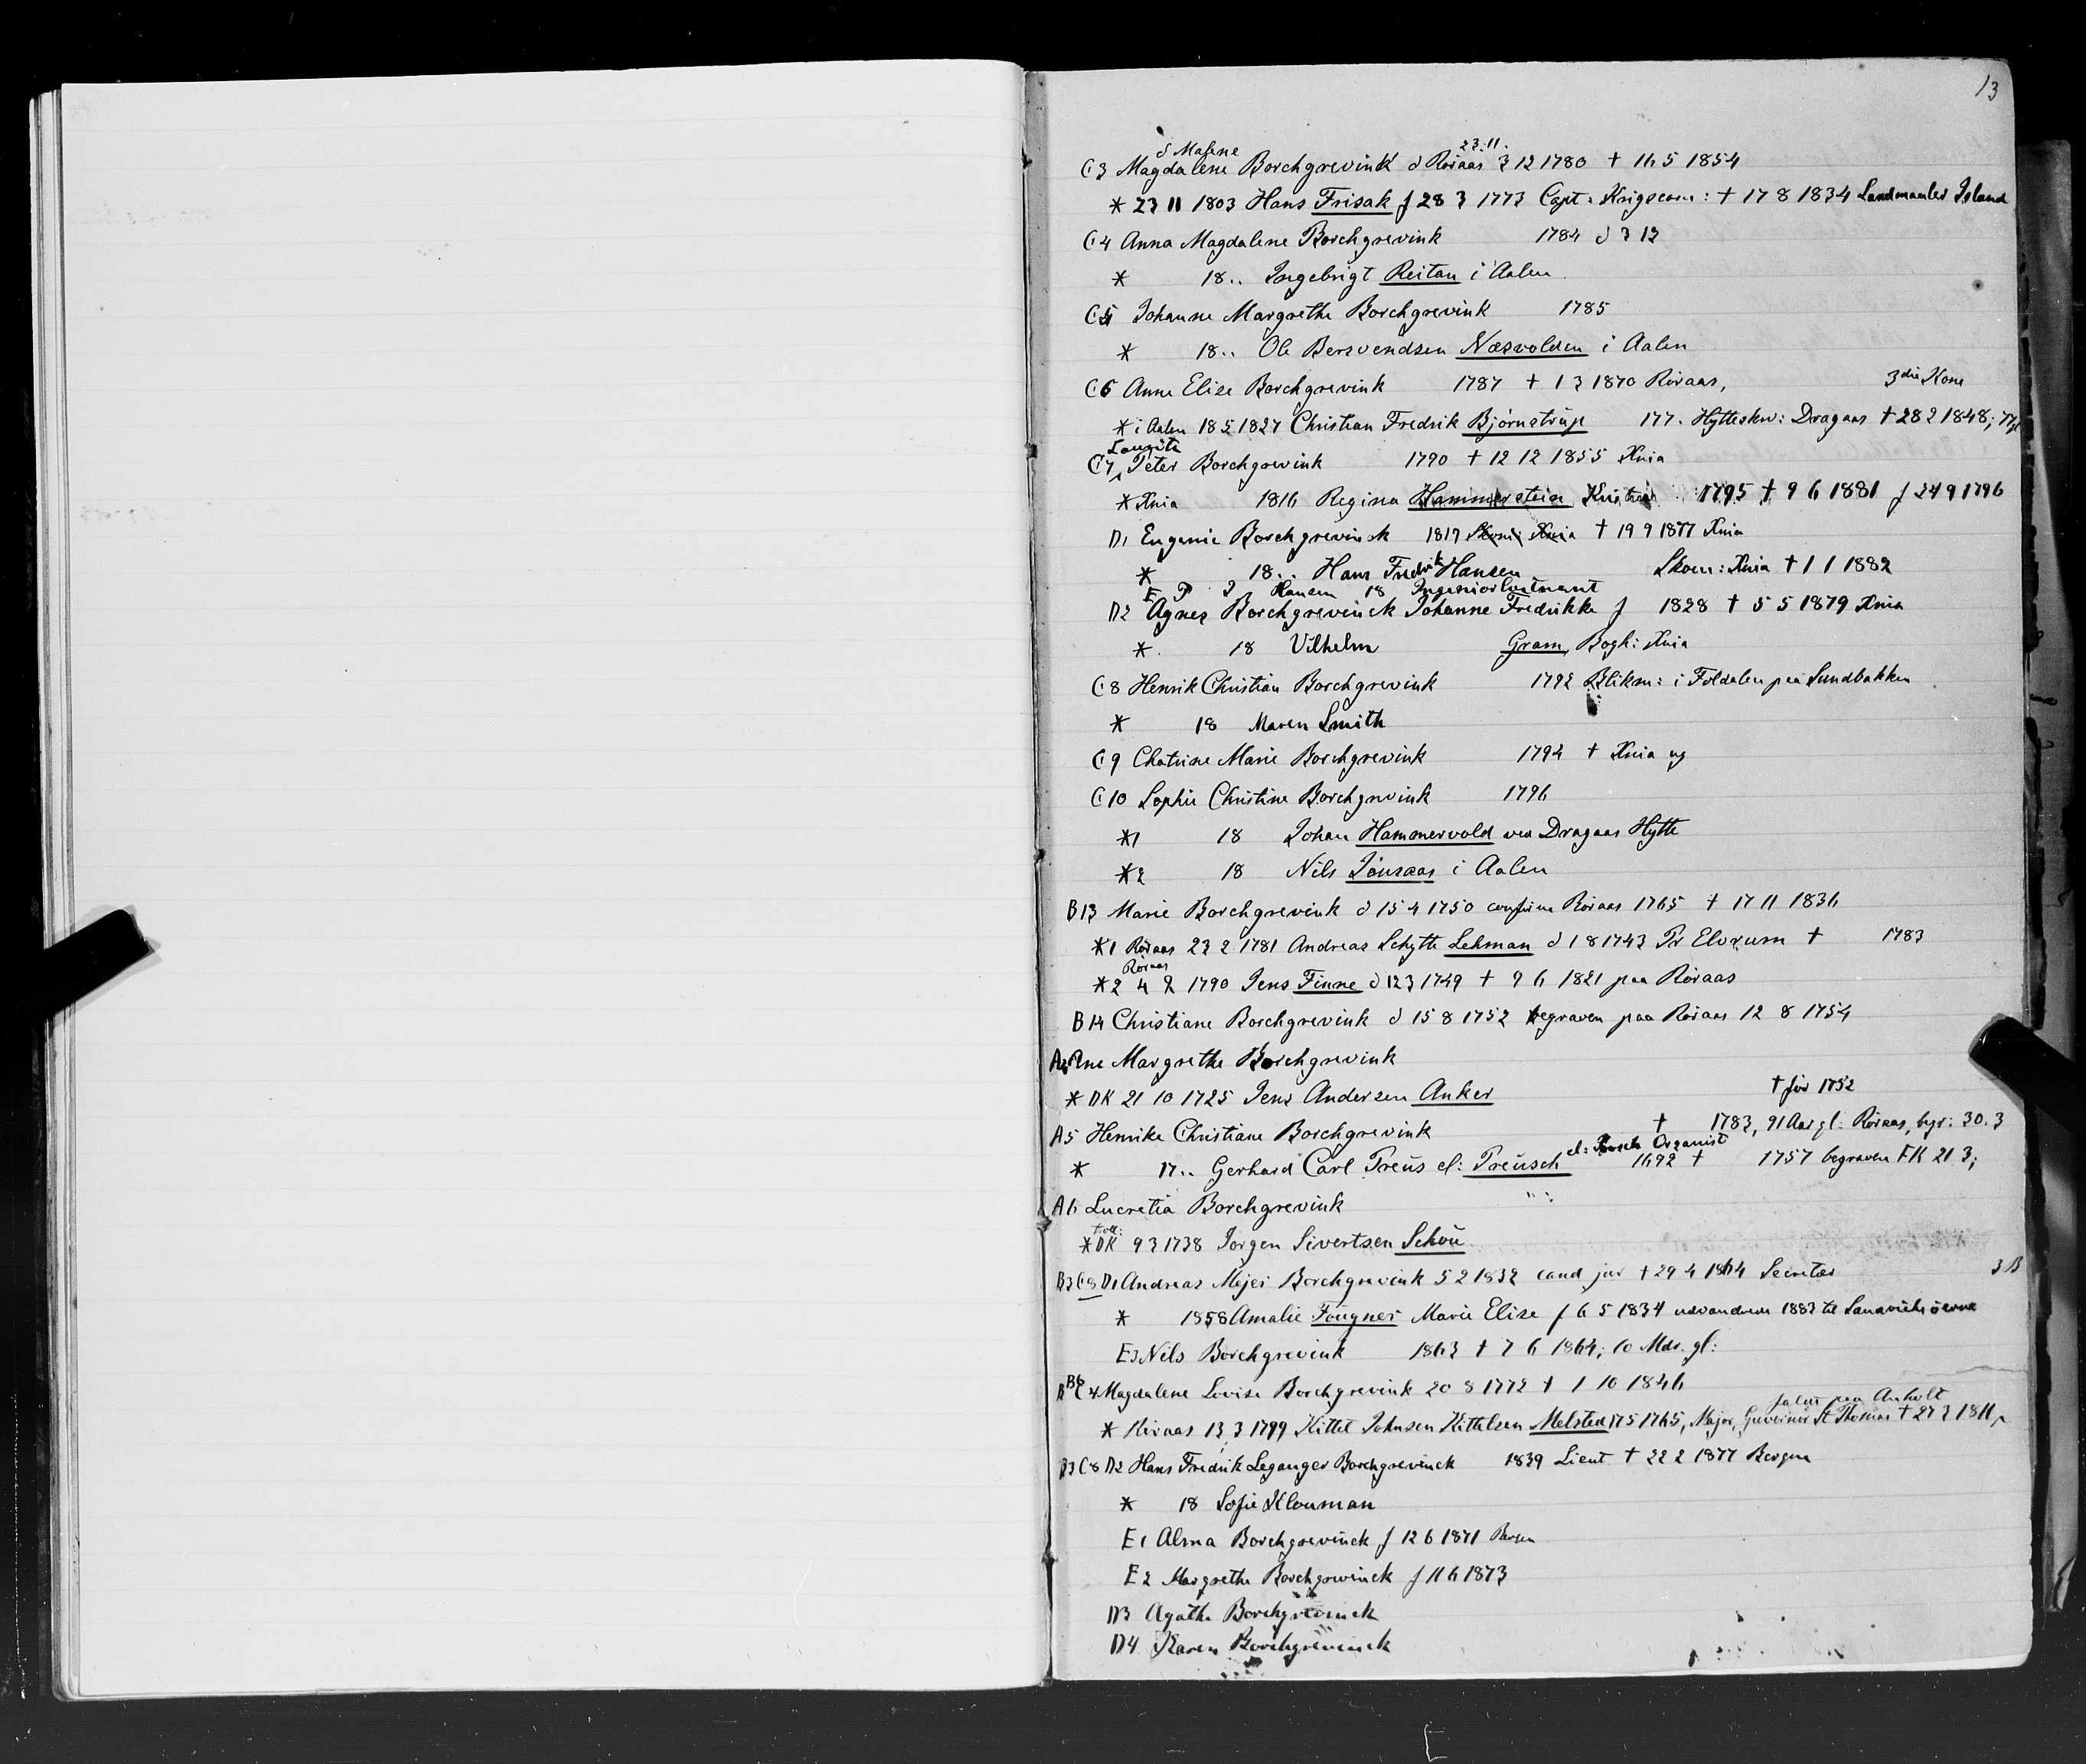 13
d Malene 23.11.
C3 Magdalene Borchgrevink d Röraas 3 12 1780 † 16 5 1854
* 23 11 1803 Hans Frisak f 28 3 1773 Capt: Krigscom: † 17 8 1834 Landmaaler Island
C4 Anna Magdalene Borchgrevink 1784 d 3 12
* 18.. Ingebrigt Reitan i Aalen
C5 Johanne Margrethe Borchgrevink 1785
* 18.. Ole Bersvendsen Næsvolden i Aalen
C6 Anne Elise Borchgrevink 1787 † 1 3 1870 Röraas, 3die Kone
* i Aalen 18 5 1827 Christian Fredrik Björnstrup 177. Hytteskr: Dragaas † 28 2 1848;
Lauritz
C7 Peter Borchgrevink 1790 † 12 12 1855 Xnia
* Xnia 1816 Regina Hammerstein 1795 † 9 6 1881 f 24 9 1796
D1 Eugenie Borchgrevinck 1819 Skom: Xnia † 19 9 1877 Xnia
* 18.. Hans Fredrik Hansen Skom: Xnia † 1 1 1882
E P J Hansen 18 Ingeniørlöitnant
D2 Agnes Borchgrevinck Johanne Fredrikke f 1828 † 5 5 1879 Xnia
* 18 Vilhelm Gram, Bogh: Xnia
C8 Henrik Christian Borchgrevink 1792 Blikm: i Foldalen paa Sundbakken
* 18 Maren Smith
C9 Chatrine Marie Borchgrevink 1794 † Xnia ug
C10 Sophie Christine Borchgrevink 1796
*1 18 Johan Hammervold ved Dragaas Hytte
*2 18 Nils Jönsaas i Aalen
B13 Marie Borchgrevink d 15 4 1750 confirm Röraas 1765 † 17 11 1836
*1 Röraas 23 2 1781 Andreas Schytte Lehman d 1 8 1743 Pr Elvrum † 1783
Röraas
*2 4 2 1790 Jens Finne d 12 3 1749 † 9 6 1821 paa Röraas
B14 Christiane Borchgrevink d 15 8 1752 begraven paa Röraas 12 8 1754
A4 Ane Margrethe Borchgrevink
* DK 21 10 1725 Jens Andersen Anker † før 1752
A5 Henrike Christiane Borchgrevink † 1783, 91 Aar gl: Röraas, begr: 30.3
el: Organist
* 17.. Gerhard Carl Treüs el: Treüsch 1692 † 1757 begraven FK 21 3;
A6 Lucretia Borchgrevink
* DK 9 3 1738 Jorgen Sivertsen Schöu
B3 C8 D1 Andreas Mejer Borchgrevink 5 2 1832 cand jur † 29 4 1864 Secretær 3 B
* 1858 Amalie Fougner Marie Elise f 6 5 1834 udvandren 1883 til Sandwichöerne
E3 Nils Borchgrevink 1863 † 7 6 1864; 10 Mdr. gl:
B6 C4 Magdalene Lovise Borchgrevink 20 8 1772 † 1 10 1846
falne paa Anholt
* Röraas 13 3 1799 Kittel Johnsen Kittelsen Melsted 17 5 1765, Major, Guvernör St Thomas † 27 3 1811
B3 C8 D2 Hans Fredrik Leganger Borchgrevinck 1839 Lieut † 22 2 1877 Bergen
* 18 Sofie Klouman
E1 Alma Borchgrevinck f 12 6 1871 Bergen
E2 Margrethe Borchgrevinck f 11 6 1873
D3 Agathe Borchgrevinck
D4 Karen Borchgrevinck